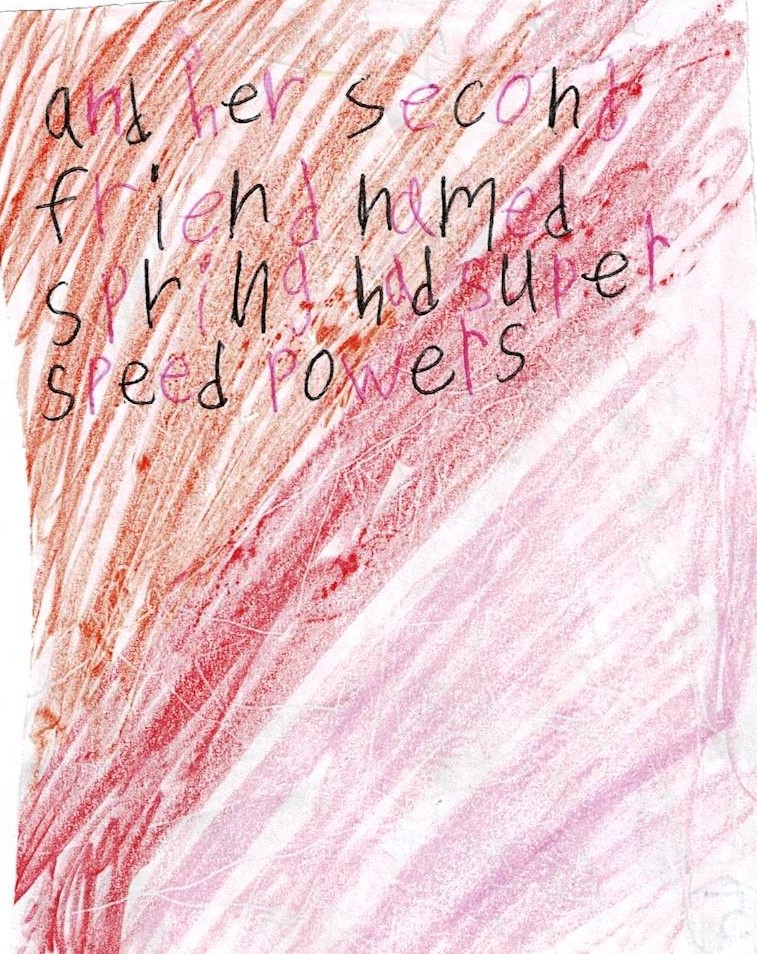 and her second
friend named
spring had super
speed powers